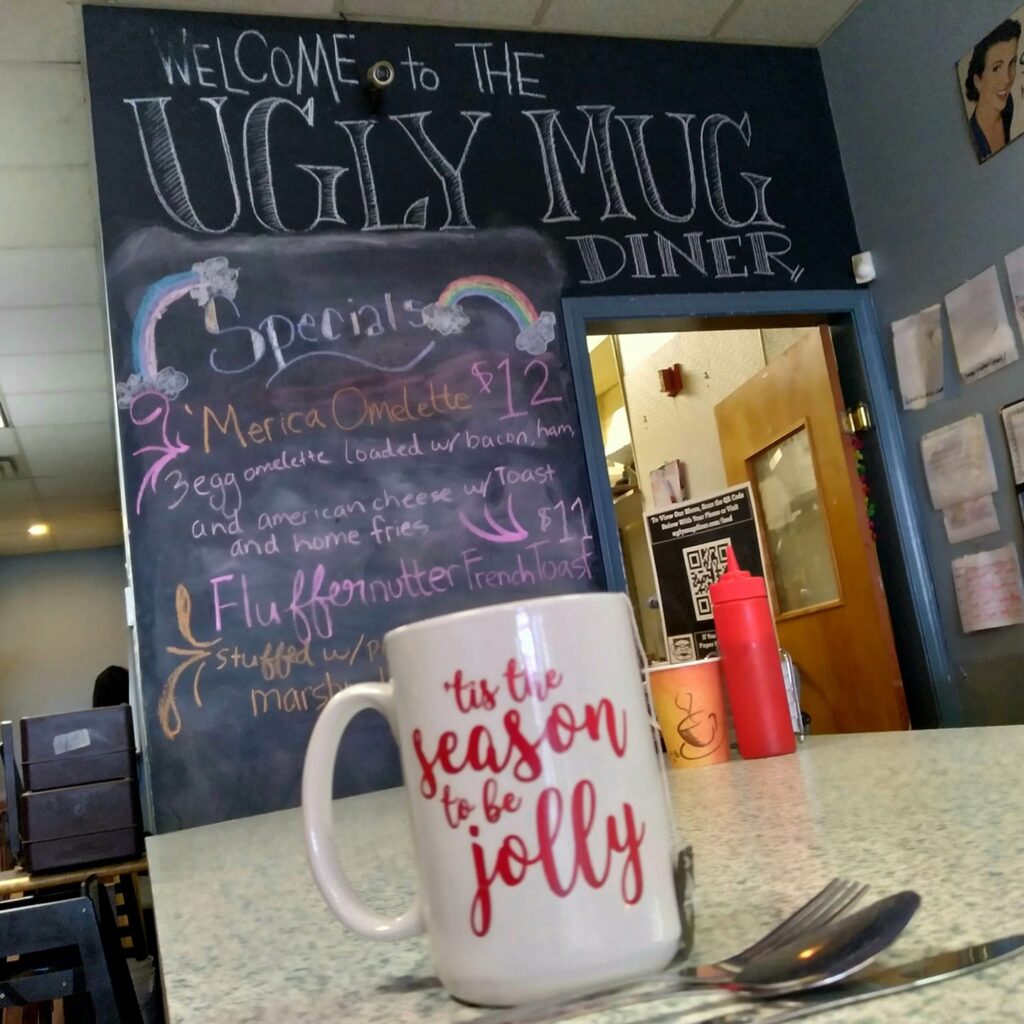 WELCOME to THE
UGLY MUG
DINER
Specials
'Merica Omelette $12
3 egg omelette loaded w/ bacon, ham,
and american cheese w/ Toast
and home fries
$11
Fluffernutter French Toast
stuffed w/
To View Our Menu, Scan the QR Code
Below With Your Phone or Visit
uglymugdiner.com/food
If You
'tis the
season
to be
jolly